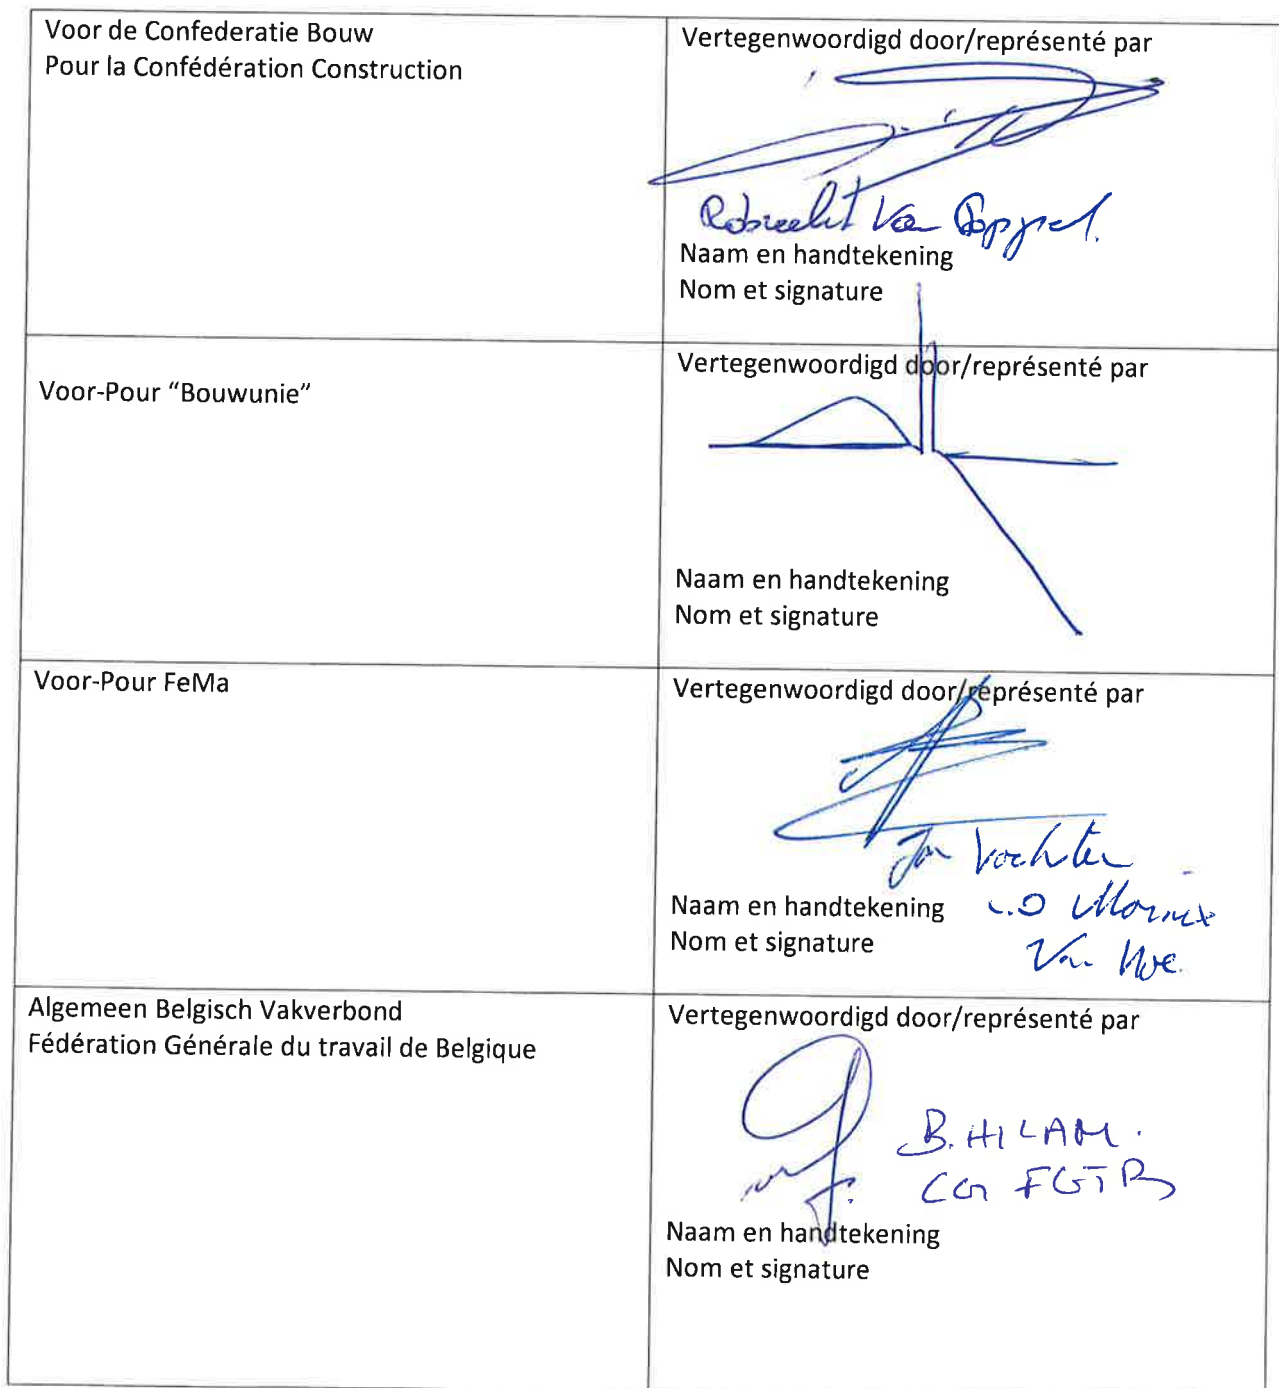 Voor de Confederatie Bouw
Pour la Confédération Construction
Vertegenwoordigd door/représenté par
Robrecht Van
Naam en handtekening
Nom et signature
Voor-Pour “Bouwunie”
Vertegenwoordigd door/représenté par
Naam en handtekening
Nom et signature
Voor-Pour FeMa
Vertegenwoordigd door/représenté par
Jan
Naam en handtekening
Nom et signature
Van
Algemeen Belgisch Vakverbond
Fédération Générale du travail de Belgique
Vertegenwoordigd door/représenté par
B. HILAMI.
CG FGTB
Naam en handtekening
Nom et signature